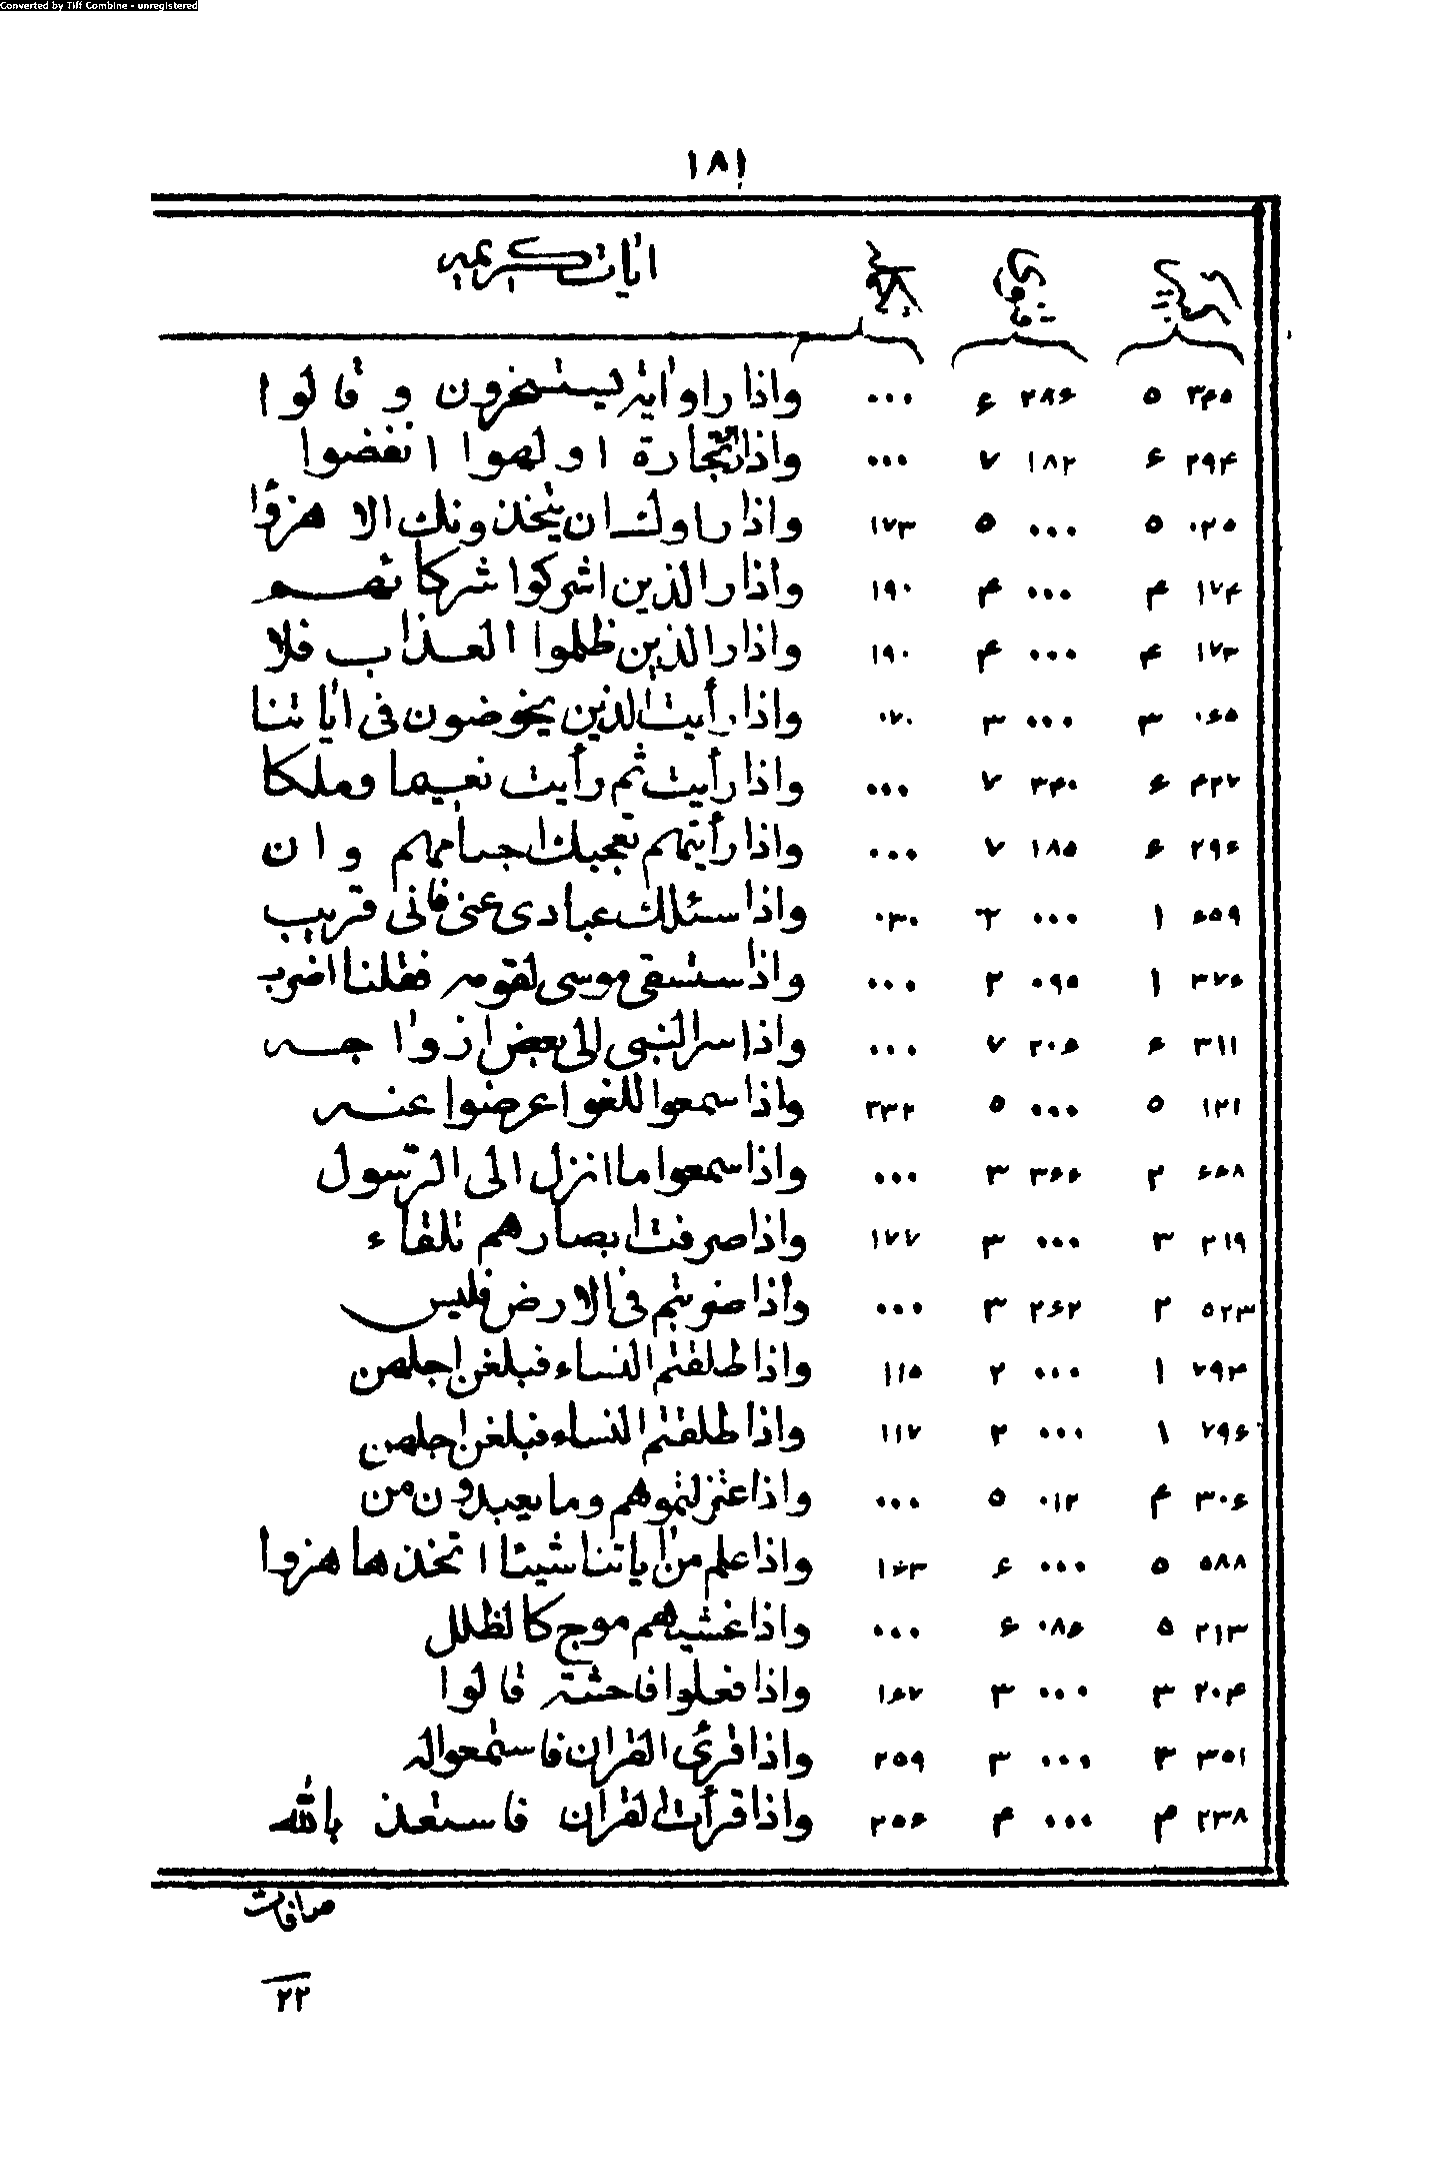 Converted by Tiff Combine - unregistered
١٨١
اٰیات کریمہ
۳۴۵ ۵ ۲۸۶ ۶ ۰۰۰ واذا راوا اٰیة یستسخرون و قالوا
۲۹۴ ۶ ۱۸۲ ۷ ۰۰۰ واذا راو تجارة او لهوا انفضوا
۰۲۵ ۵ ۰۰۰ ۵ ۱۷۳ واذا راوك ان یتخذونك الا هزؤا
۱۷۴ ۴ ۰۰۰ ۴ ۱۹۰ واذا را الذین اشرکوا شرکائهم
۱۷۳ ۴ ۰۰۰ ۴ ۱۹۰ واذا را الذین ظلموا العذاب فلا
۰۶۵ ۳ ۰۰۰ ۳ ۰۷۰ واذا رأیت الذین یخوضون فی اٰیاتنا
۴۲۷ ۶ ۳۴۰ ۷ ۰۰۰ واذا رأیت ثم رأیت نعیما وملکا
۲۹۶ ۶ ۱۸۵ ۷ ۰۰۰ واذا رأیتهم تعجبك اجسامهم وان
۶۵۹ ۱ ۰۰۰ ۲ ۰۳۰ واذا سئلك عبادی عنی فانی قریب
۳۷۶ ۱ ۰۹۵ ۲ ۰۰۰ واذا ستسقی موسی لقومہ فقلنا اضرب
۳۱۱ ۶ ۲۰۶ ۷ ۰۰۰ واذا سر النبی الی بعض ازواجه
۱۲۱ ۵ ۰۰۰ ۵ ۳۳۲ واذا سمعوا للغوا عرضوا عنه
۶۶۸ ۲ ۳۶۶ ۳ ۰۰۰ واذا سمعوا ما انزل الی الرّسول
۲۱۹ ۳ ۰۰۰ ۳ ۱۷۷ واذا صرفت ابصارهم تلقاء
۵۲۳ ۲ ۲۶۲ ۳ ۰۰۰ واذا ضربتم فی الارض فلیس
۷۹۴ ۱ ۰۰۰ ۲ ۱۱۵ واذا طلقتم النساء فبلغن اجلهن
۷۹۶ ۱ ۰۰۰ ۲ ۱۱۷ واذا طلقتم النساء فبلغن اجلهن
۳۰۶ ۴ ۰۱۲ ۵ ۰۰۰ واذا عتزلتموهم وما یعبدون من
۵۸۸ ۵ ۰۰۰ ۶ ۱۶۳ واذا علم من اٰیاتنا شیئا اتخذها هزوا
۲۱۳ ۵ ۰۸۶ ۶ ۰۰۰ واذا غشیهم موج کالظلل
۲۰۴ ۳ ۰۰۰ ۳ ۱۶۷ واذا فعلوا فاحشة قالوا
۳۵۱ ۳ ۰۰۰ ۳ ۲۵۹ واذا قرئ القران فاستمعوا له
۲۳۸ ۴ ۰۰۰ ۴ ۲۵۶ واذا قرأت القران فاستعذ بالله
صافات
۲۲